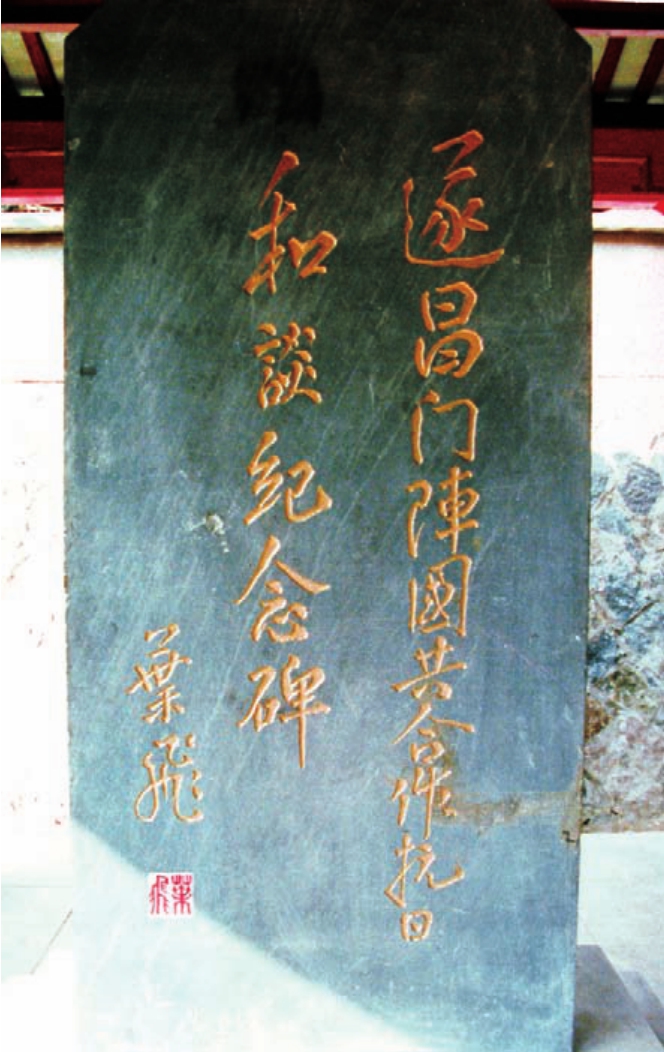 遂昌门陣國共合作抗日
和談紀念碑
葉飛
葉飛